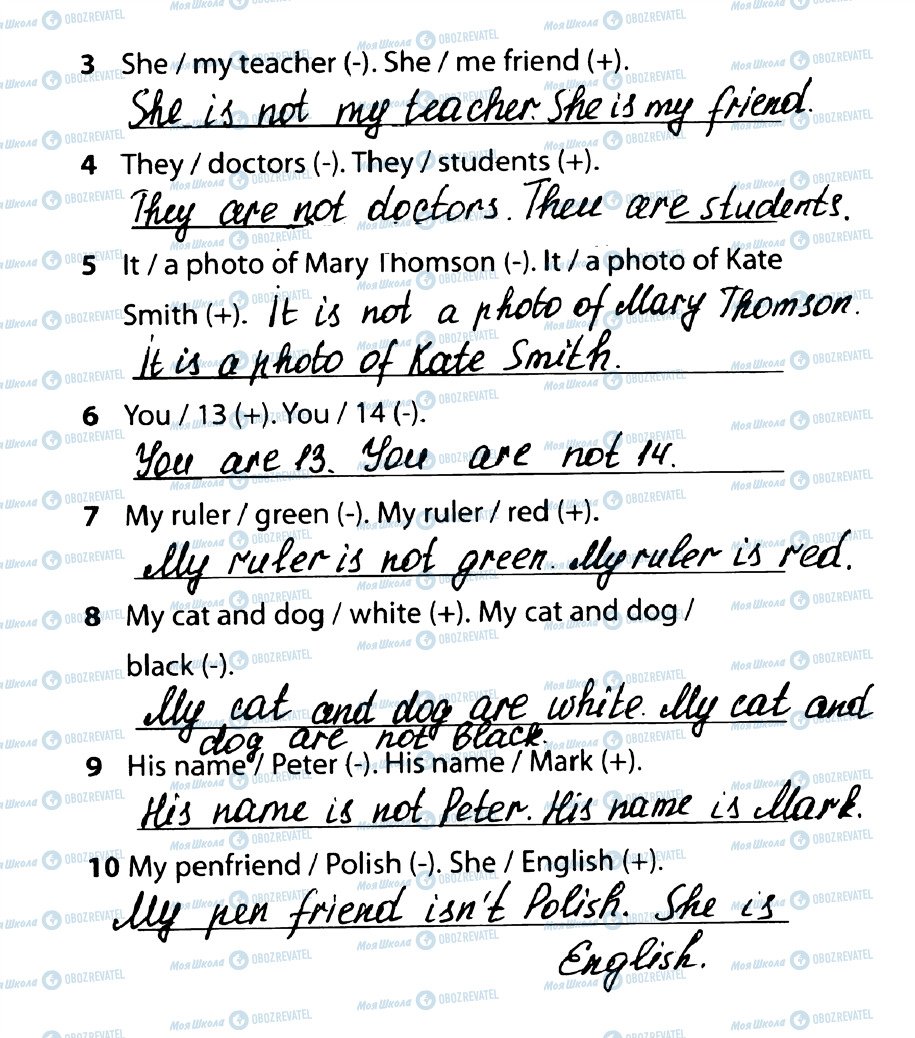 3 She / my teacher (-). She / me friend (+).
She is not my teacher. She is my friend.
4 They / doctors (-). They / students (+).
They are not doctors. They are students.
5 It / a photo of Mary Thomson (-). It / a photo of Kate
Smith (+). It is not a photo of Mary Thomson.
It is a photo of Kate Smith.
6 You / 13 (+). You / 14 (-).
You are 13. You are not 14.
7 My ruler / green (-). My ruler / red (+).
My ruler is not green. My ruler is red.
8 My cat and dog / white (+). My cat and dog /
black (-).
My cat and dog are white. My cat and
dog are not black.
9 His name / Peter (-). His name / Mark (+).
His name is not Peter. His name is Mark.
10 My penfriend / Polish (-). She / English (+).
My pen friend isn't Polish. She is
English.
Моя Школа OBOZREVATEL